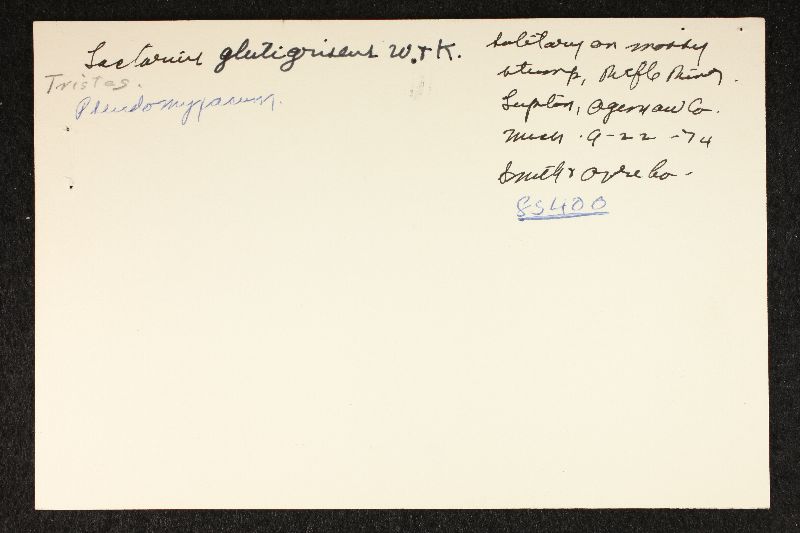 Lactarius glutigriseus W. & K.
Tristes.
Pseudomyxacium.
Solitary on mossy
stump, Rifle River.
Lupton, Ogemaw Co.
Mich. 9-22-74
Smith &
85400